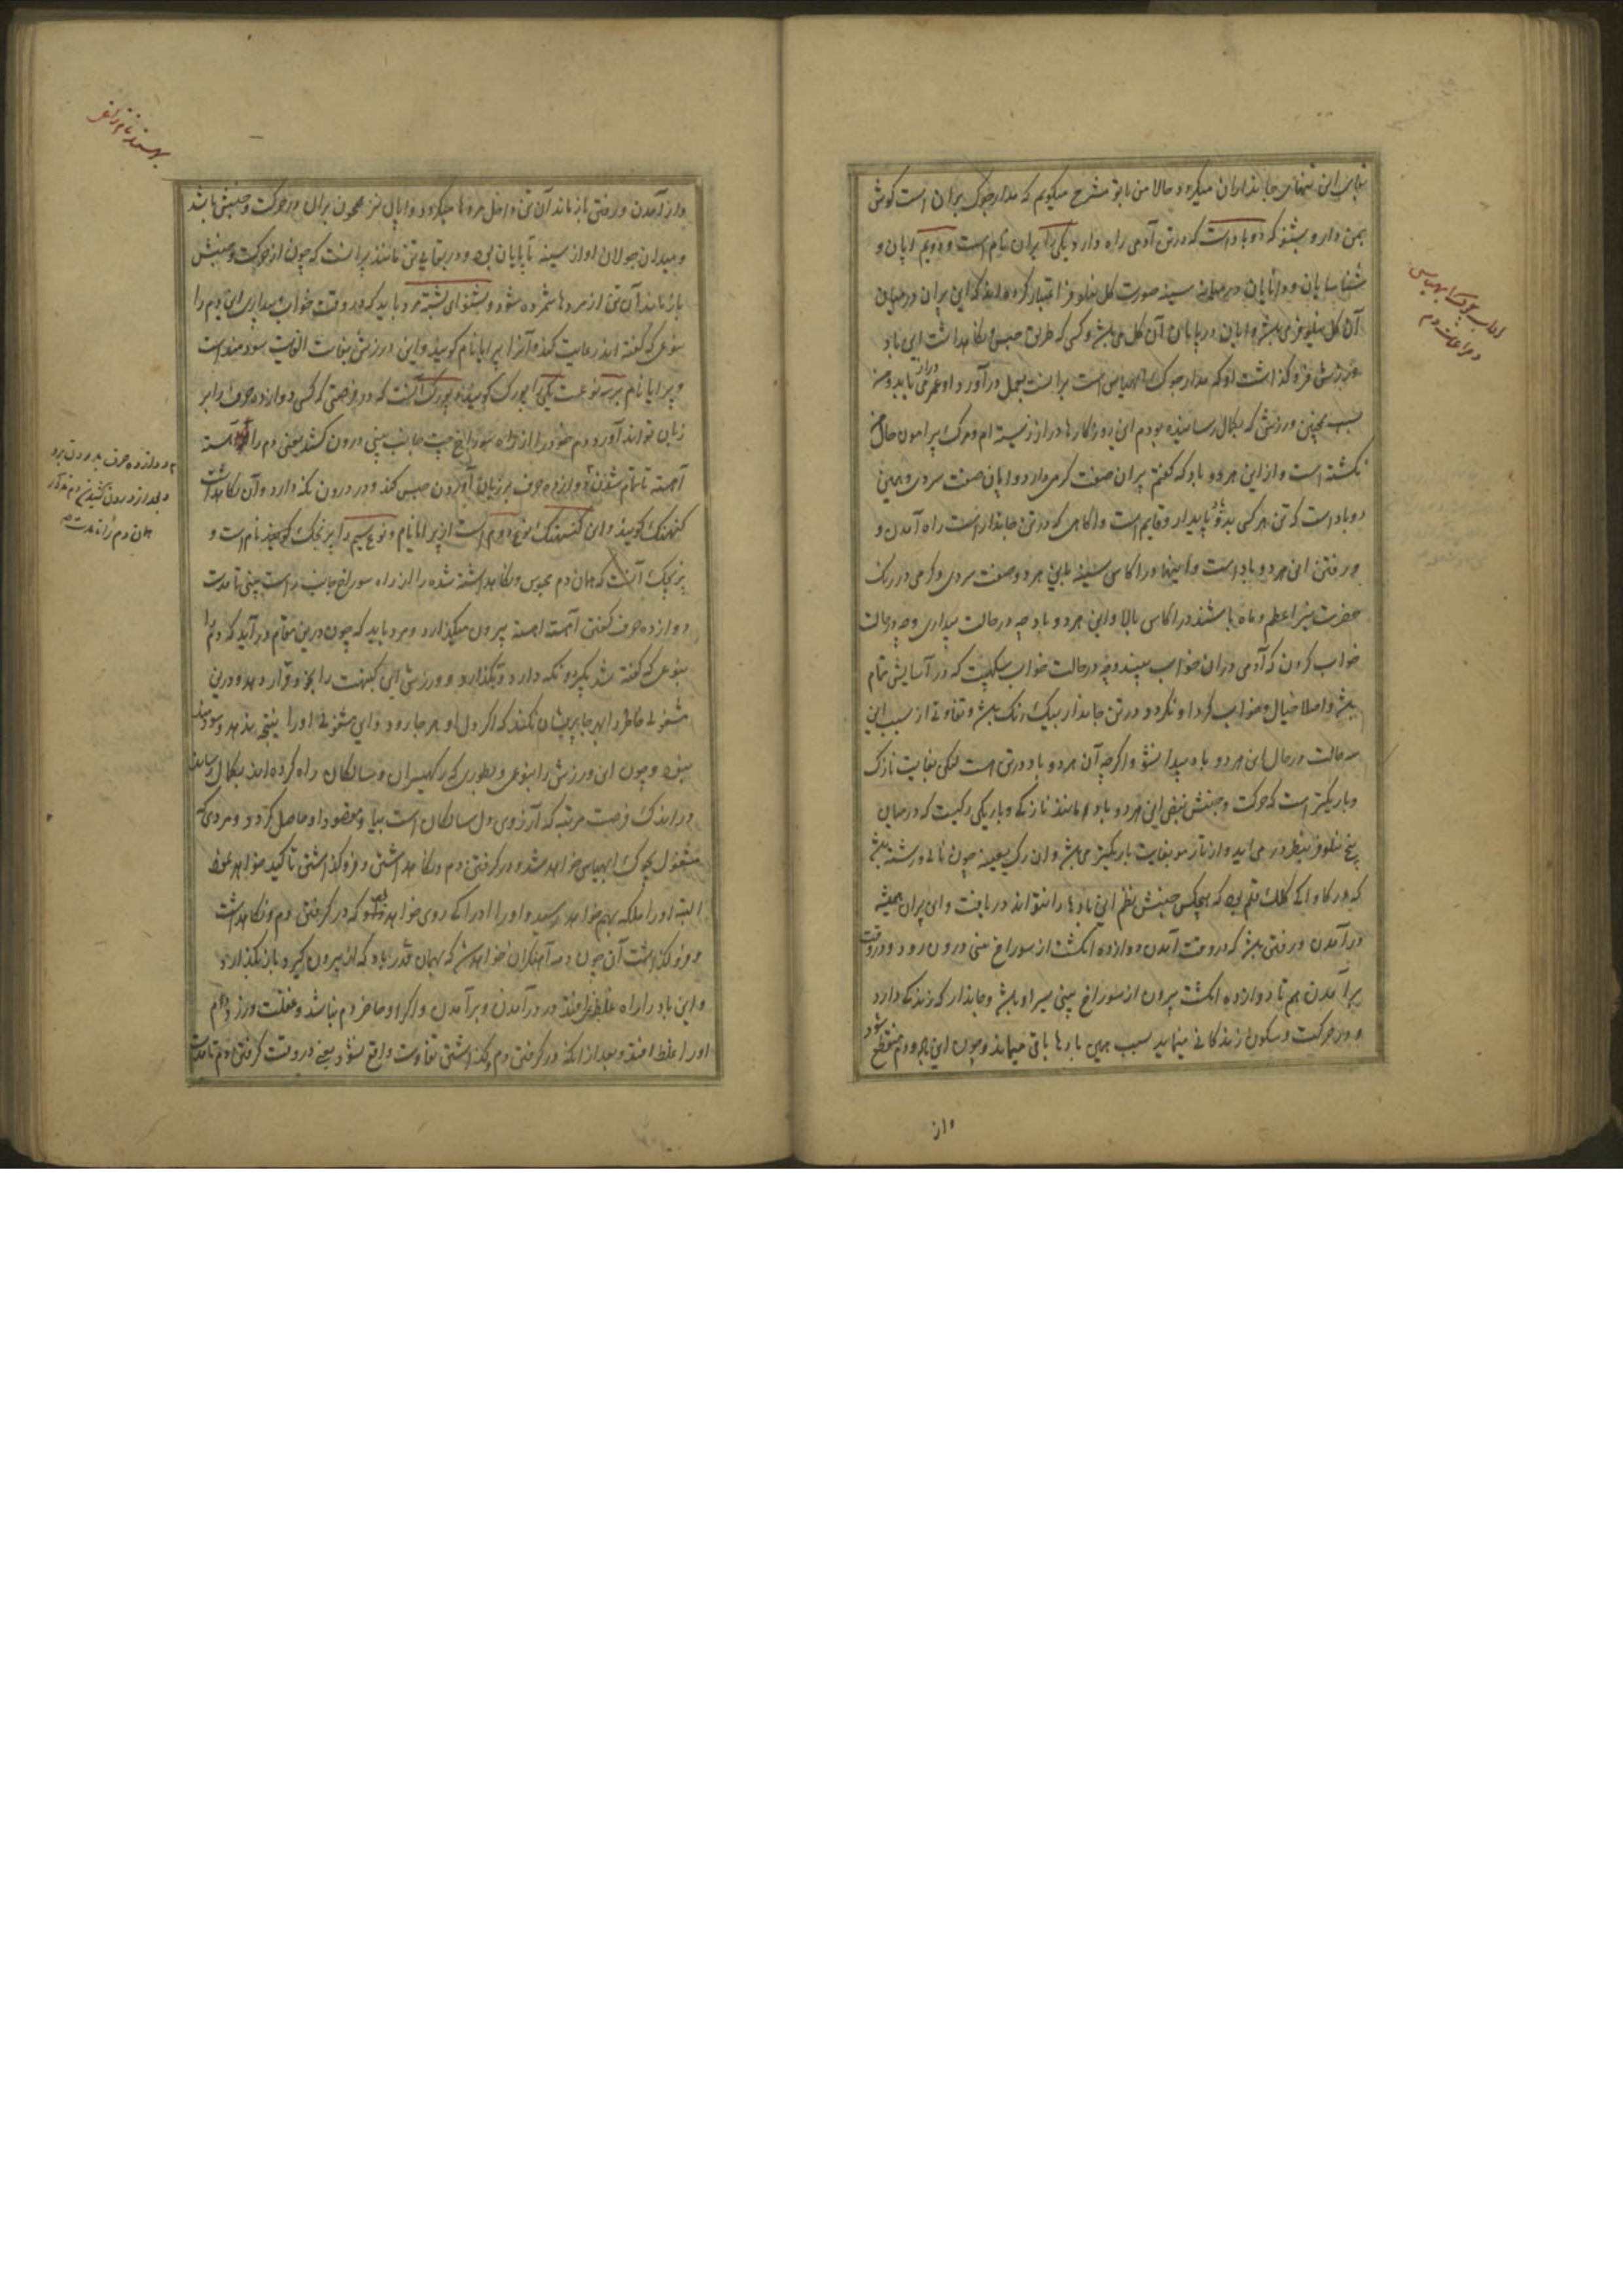 بقای این تنهای جانداران میگردد حالا من با تو مشرح میگویم که مدار جوگ بران است گوش
بمن دار و بشنو که دو باد است که در تن آدمی راه دارد یکی را پران نام است و دویم اپان و
سینه صورت گل نیلوفر اعتبار کرده اند که این پران در میان
آن گل نیلوفر می باشد و اپان در پایان آن گل می باشد و کسی که طریق حبس و نگاهداشت این باد
و ورزش فرو گذاشت او که مدار جوگ ابهیاس است بعمل درآورد او عمر دراز می یابد و من
بسبب همچنین ورزش که بکمال رسانیده بودم این روزگارها دراز زیسته ام و مرگ پیرامون حال من
نگشته است و از این هر دو باد که گفتم پران صفت گرمی دارد و اپان صفت سردی و همین
دو باد است که تن هر کسی بدو پایدار و قایم است و آگاهی که در تن جاندار است راه آمدن و
و رفتن این هر دو باد است و اینها در اکاس سینه باین هر دو صفت سردی و گرمی در رنگ
حضرت نیر اعظم و ماه باشند در اکاس بالا و این هر دو باد چه در حالت بیداری و چه در حالت
خواب کردن که آدمی در ان خواب بیند و چه در حالت خواب سکهپت که در آسایش تمام
باشد و اصلا خیال و خواب گرد او نگردد در تن جاندار بیک رنگ باشد و تفاوتی از سبب این
سه حالت در حال این هر دو باد پیدا نشود اگرچه آن هر دو باد در تن است لیکن بغایت نازک
و باریکتر است که حرکت و جنبش نبض این هر دو باد مانند نازکی و باریکی رگیست که در میان
بیخ نیلوفر بنظر در می آید و از تار مو بغایت باریکتر می باشد و ان رگ بعینه چون نالی و رشته باشد
که در کاواکی کلک قلم بود که هیچکس جنبش نظم این بادها را نتواند دریافت و این پران همیشه
در آمدن و رفتن باشد که در وقت آمدن دوازده انگشت از سوراخ بینی درون رود و در وقت
برآمدن هم تا دوازده انگشت بیرون از سوراخ بینی سیر او باشد و جاندار که زندگی دارد
و در حرکت و سکون زندگانی مینماید بسبب همین بادها باقی میماند و چون این هر دو دم منقطع شود
واز
و مراعات دم
و از آمدن و رفتن باز ماند آن تن داخل مردها میگردد و اپان نیز همچون پران در حرکت و جنبش باشد
و میدان جولان او از سینه تا پایان بود و در بقای تن مانند پرانست که چون از حرکت و جنبش
باز ماند آن تن از مردها شمرده شود و بشنو ای بشسته مرد باید که در وقت خواب و بیداری این دم را
بنوعی که گفته اند رعایت کند و آنرا پرانایام گویند و این ورزش بغایت الغایت سودمند است
و پرانایام بر سه نوعست یکی را پورک گویند و پورک آنست که در فرصتی که کسی دوازده حرف را بر
زبان تواند آورد دم خود را از راه سوراخ چپ جانب بینی درون کشد یعنی دم را آهسته
آهسته تا تمام شدن دوازده حرف بر زبان آوردن حبس کند و در درون نگه دارد و آن نگاهداشت
کنبهک گویند و این کنبهک نوع دوم است از پرانایام و نوع سیم را ریچک گویند نام است و
ریچک آنست که همان دم محبوس و نگاهداشته شده را از راه سوراخ جانب راست بینی تا مدت
دوازده حرف گفتن آهسته آهسته بیرون میگذارد و مرد باید که چون درین مقام درآید که دم را
بنوعی که گفته شد بگیرد و نگه دارد و بگذارد و ورزش این کیفیت را بخود قرار دهد و درین
مشغولی خاطر را بهر جا پریشان نکند که اگر دل او هر جا رود این مشغولی او را نتیجه ندهد و سودمند
نبود و چون این ورزش را بنوعی و بطوری که رکهیسران و سالکان راه کرده اند بکمال رساند
در اندک فرصت مرتبه که آرزوی دل سالکان است بیابد و مقصود او حاصل گردد و مردی که
مشغول جوگ ابهیاس خواهد شد و در گرفتن دم و نگاهداشتن و فرو گذاشتن تاکید خواهد نمود
البته او را ملکه بهم خواهد رسید و او را ادراکی روی خواهد نمود که در گرفتن دم و نگاهداشت
و فرو گذاشت آن چون دمه آهنگران خواهد شد که بهمان قدر باد که از بیرون گیرد باز بگذارد
و این باد را راه غلط نیفتد در درآمدن و برآمدن و اگر او حاضر دم نباشد و غفلت ورزد دم
او را غلط افتد و بعد از آنکه در گرفتن دم و گذاشتن تفاوت واقع شود یعنی در وقت گرفتن دم تا مدت
دوازده حرف بدرون برد
و بعد از درون کشیدن دم مذکور
همان دم را تا مدت